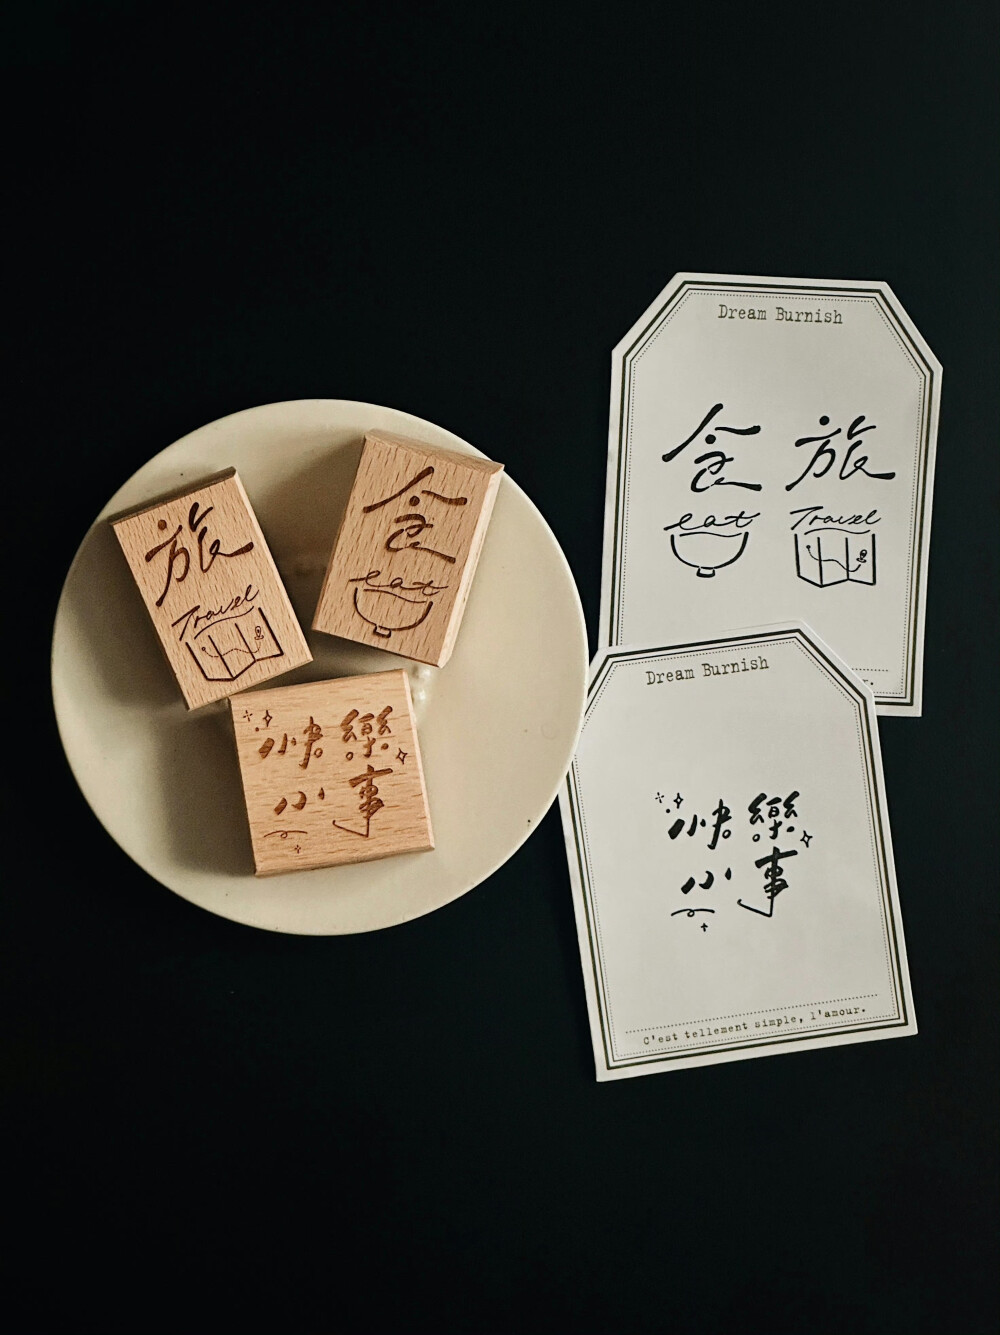 旅
Travel
食
eat
快樂
小事
Dream Burnish
食 旅
eat Travel
r.
Dream Burnish
快樂
小事
C'est tellement simple, l'amour.